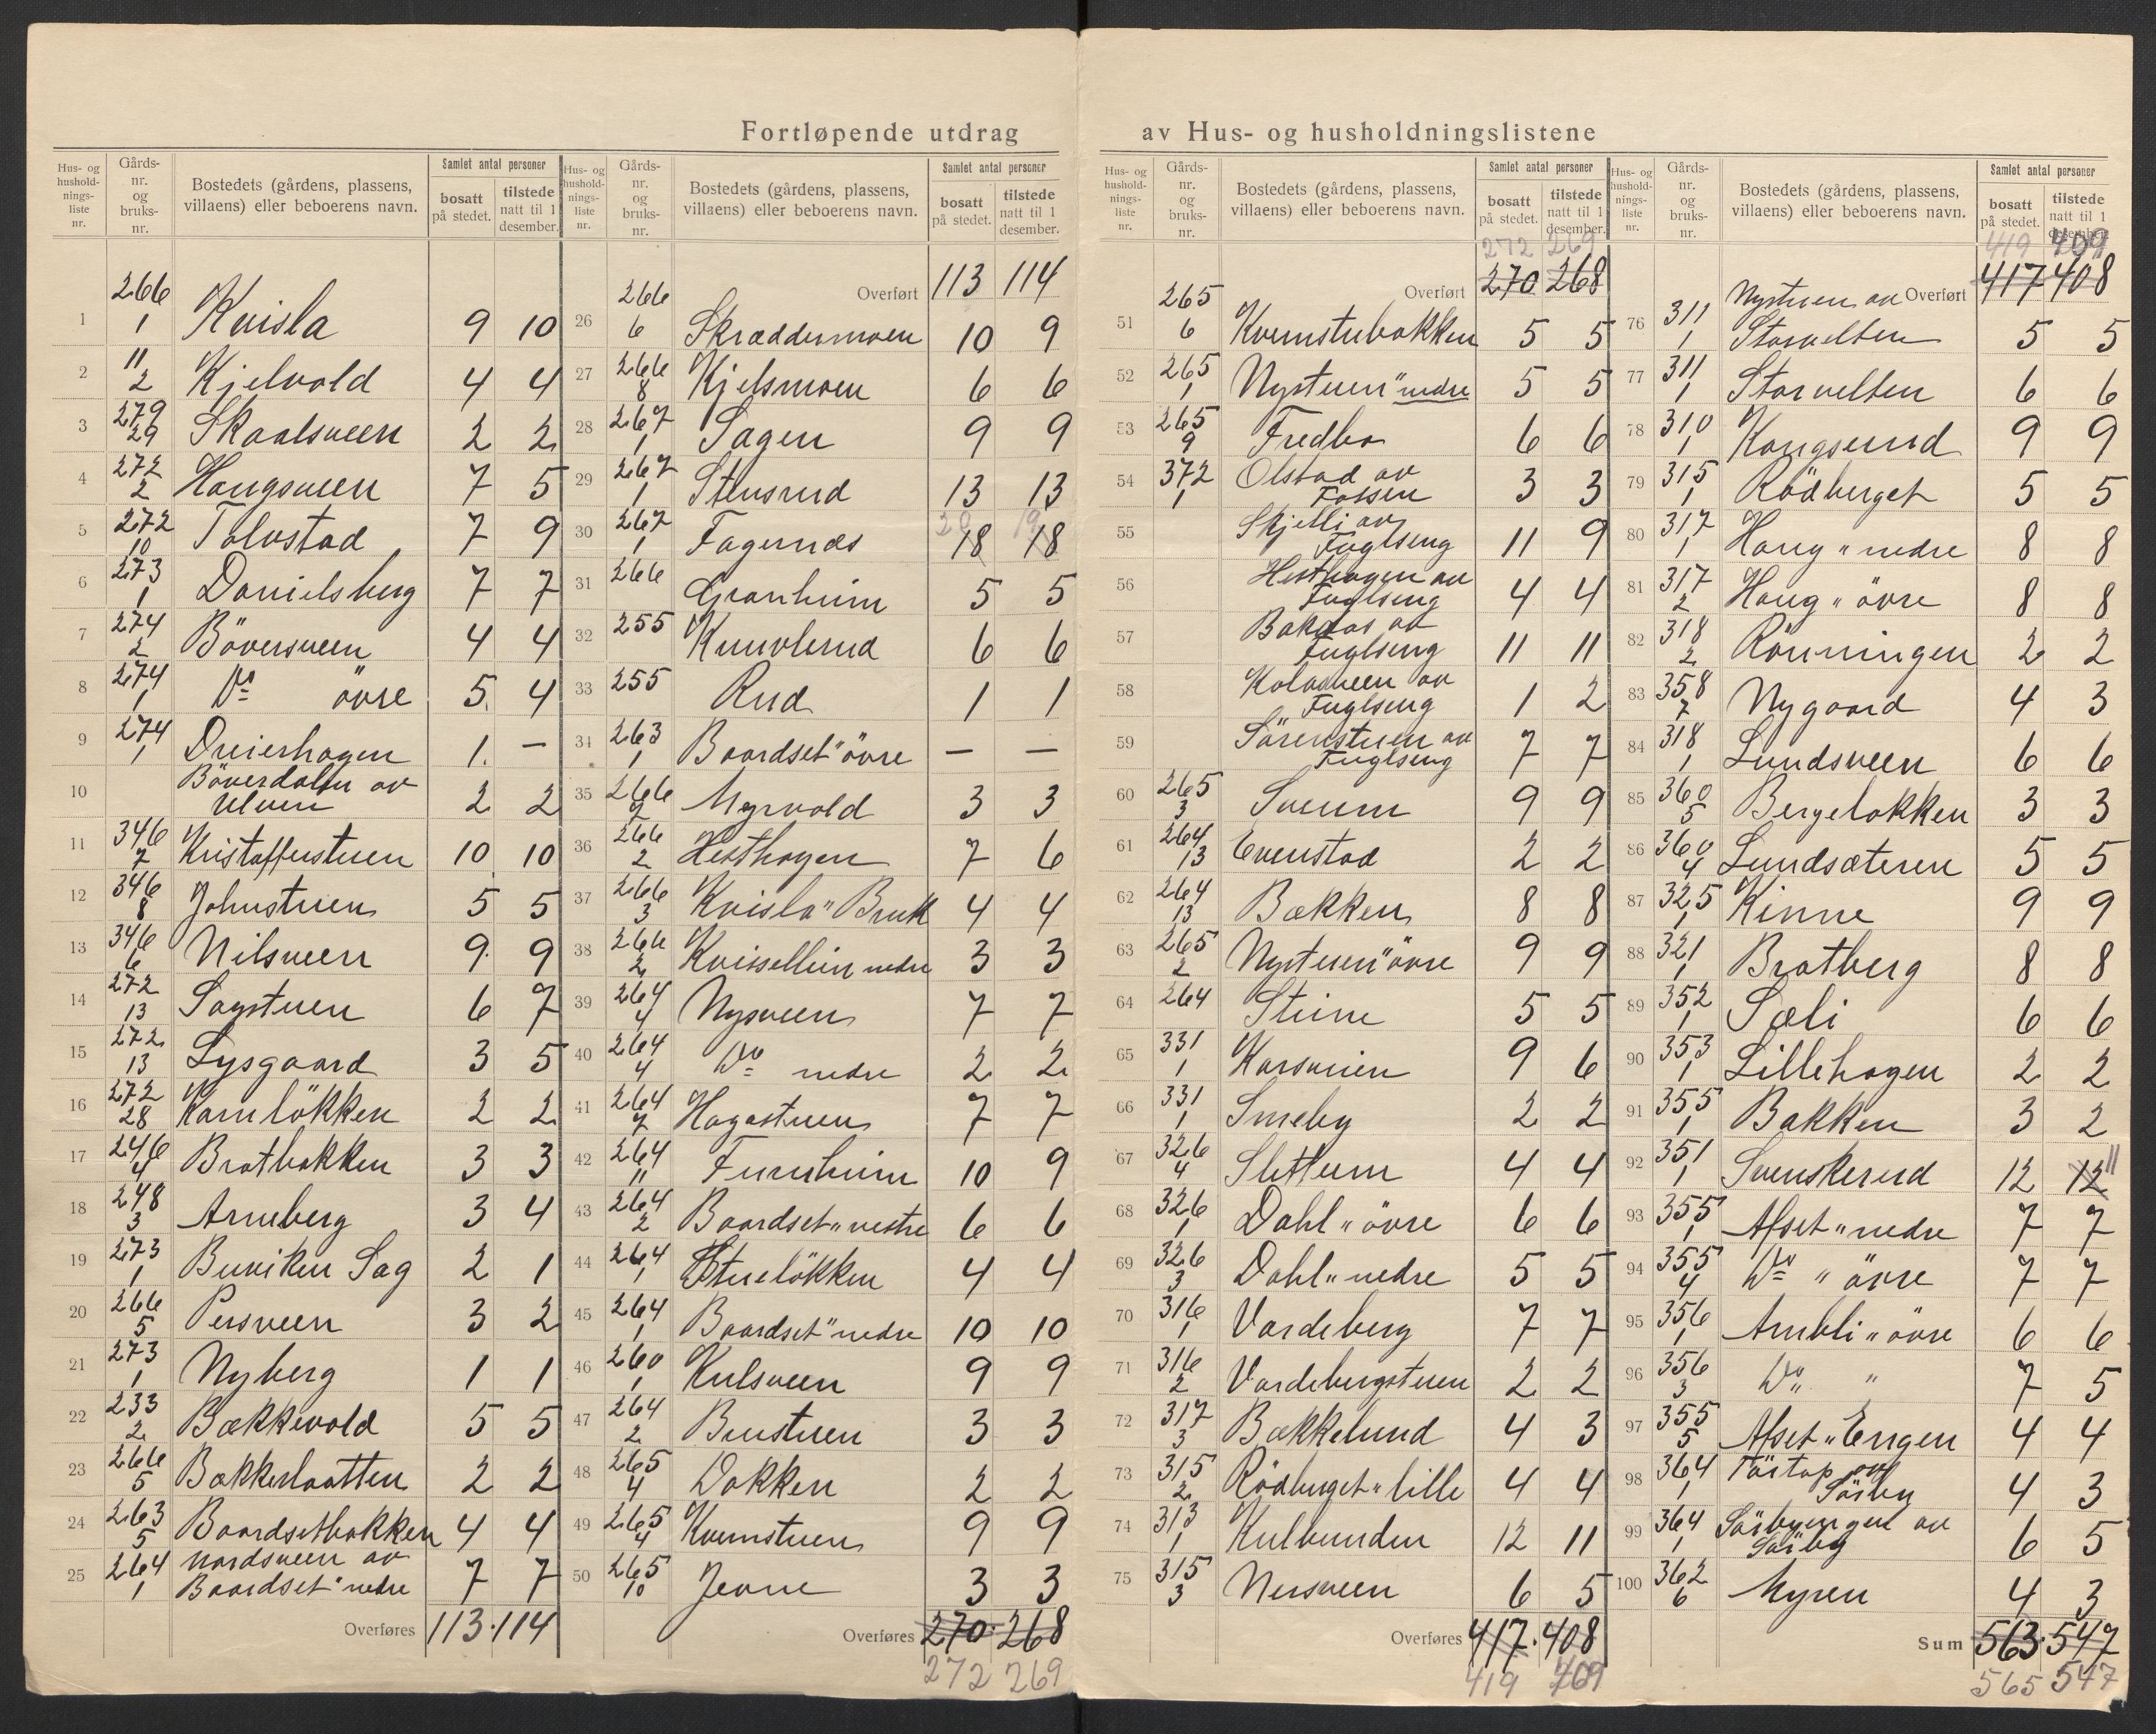 Fortløpende utdrag av Hus- og husholdningslistene
Hus- og hushold-nings-liste nr. | Gårds-nr. og bruks-nr. | Bostedets (gårdens, plassens, villaens) eller beboerens navn. | Samlet antal personer bosatt på stedet. | tilstede natt til 1 desember.
1 266/1 Kvisla 9 10
2 "/2 Kjelvold 4 4
3 279/29 Skaalsveen 2 2
4 272/2 Haugsveen 7 5
5 272/10 Tolvstad 7 9
6 273/1 Danielsberg 7 7
7 274/2 Böversveen 4 4
8 274/1 Do övre 5 4
9 274/1 Dreierhagen 1 —
10 Böverdalen av Ulven 2 2
11 346/7 Kristofferstuen 10 10
12 346/8 Johnstuen 5 5
13 346/6 Nilsveen 9 9
14 272/13 Sagstuen 6 7
15 272/13 Lysgaard 3 5
16 272/28 Kornlökken 2 2
17 246/4 Bratbakken 3 3
18 248/3 Arneberg 3 4
19 273/1 Buviken Sag 2 1
20 266/5 Persveen 3 2
21 273/1 Nyberg 1 1
22 233/2 Bækkevold 5 5
23 266/5 Bækkeslaatten 2 2
24 263/5 Baardsetbakken 4 4
25 264/1 Nordsveen av Baardset" nedre 7 7
Overføres 113 114
Hus- og hushold-nings-liste nr. | Gårds-nr. og bruks-nr. | Bostedets (gårdens, plassens, villaens) eller beboerens navn. | Samlet antal personer bosatt på stedet. | tilstede natt til 1 desember.
Overført 113 114
26 266/6 Skræddermoen 10 9
27 266/8 Kjelsmoen 6 6
28 267/1 Sagen 9 9
29 267/1 Stensrud 13 13
30 267/1 Fagernæs 18 18 20 19
31 266 Granheim 5 5
32 255 Knuvlerud 6 6
33 255 Rud 1 1
34 263/1 Baardset" övre — —
35 266/2 Myrvold 3 3
36 266/2 Hesthagen 7 6
37 266/3 Kvisla" Bruk 4 4
38 266/2 Kvisselleien nedre 3 3
39 264/4 Nysveen 7 7
40 264/4 Do nedre 2 2
41 264/7 Hagastuen 7 7
42 264/11 Furuheim 10 9
43 264/2 Baardset" vestre 6 6
44 264/1 Stuelökken 4 4
45 264/1 Baardset" nedre 10 10
46 260/1 Kulsveen 9 9
47 264/2 Brustuen 3 3
48 265/4 Dokken 2 2
49 265/4 Kvernstuen 9 9
50 265/10 Jevne 3 3
Overføres 270 268
272 269
Hus- og hushold-nings-liste nr. | Gårds-nr. og bruks-nr. | Bostedets (gårdens, plassens, villaens) eller beboerens navn. | Samlet antal personer bosatt på stedet. | tilstede natt til 1 desember.
272 269
Overført 270 268
51 265/6 Kvernstubakken 5 5
52 265/1 Nystuen" nedre 5 5
53 265/9 Fredbo 6 6
54 372/1 Olstad av Fossen 3 3
55 Skjelli av Fuglseng 11 9
56 Hesthagen av Fuglseng 4 4
57 Bakaas av Fuglseng 11 11
58 Kolosveen av Fuglseng 1 2
59 Sörenstuen av Fuglseng 7 7
60 265/3 Sveum 9 9
61 264/13 Evenstad 2 2
62 264/13 Bækken 8 8
63 265/2 Nystuen" övre 9 9
64 264 Steine 5 5
65 331/1 Karsveien 9 6
66 331/1 Smeby 2 2
67 326/4 Slettum 4 4
68 326/1 Dahl" övre 6 6
69 326/3 Dahl" nedre 5 5
70 316/1 Vardeberg 7 7
71 316/2 Vardebergstuen 2 2
72 317/3 Bækkelund 4 3
73 315/2 Rödberget" lille 4 4
74 313/1 Kulbunden 12 11
75 315/3 Nersveen 6 5
Overføres 417 408
419 409
Hus- og hushold-nings-liste nr. | Gårds-nr. og bruks-nr. | Bostedets (gårdens, plassens, villaens) eller beboerens navn. | Samlet antal personer bosatt på stedet. | tilstede natt til 1 desember.
419 409
Overført 417 408
76 311/1 Nystuen av Storvelten 5 5
77 311/1 Storvelten 6 6
78 310/1 Kongserud 9 9
79 315/1 Rödberget 5 5
80 317/1 Haug" nedre 8 8
81 317/2 Haug" övre 8 8
82 318/2 Rönningen 2 2
83 358/7 Nygaard 4 3
84 318/1 Lundsveen 6 6
85 360/5 Bergelokken 3 3
86 360/4 Lundsæteren 5 5
87 325/1 Kinne 9 9
88 321/1 Bratberg 8 8
89 352/1 Sæli 6 6
90 353/1 Lillehagen 2 2
91 355/1 Bakken 3 2
92 351/1 Svenskerud 12 12 11
93 355/1 Afset" nedre 7 7
94 355/4 Do " övre 7 7
95 356/1 Arnbli" övre 6 6
96 356/3 Do " 7 5
97 355/5 Afset" Engen 4 4
98 364/1 Törtop av Sörby 4 3
99 364/1 Sörbyengen av Sörby 6 5
100 362/6 Myren 4 3
Sum 563 547
565 547